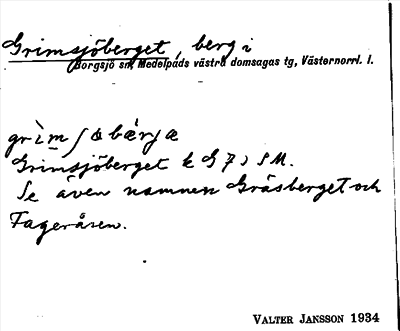 Grimsjöberget, berg i
Borgsjö sn, Medelpads västra domsagas tg, Västernorrl. l.
Grimsjöberget k G7, SM.
Se även namnen Gräsberget och
Fageråsen.
VALTER JANSSON 1934